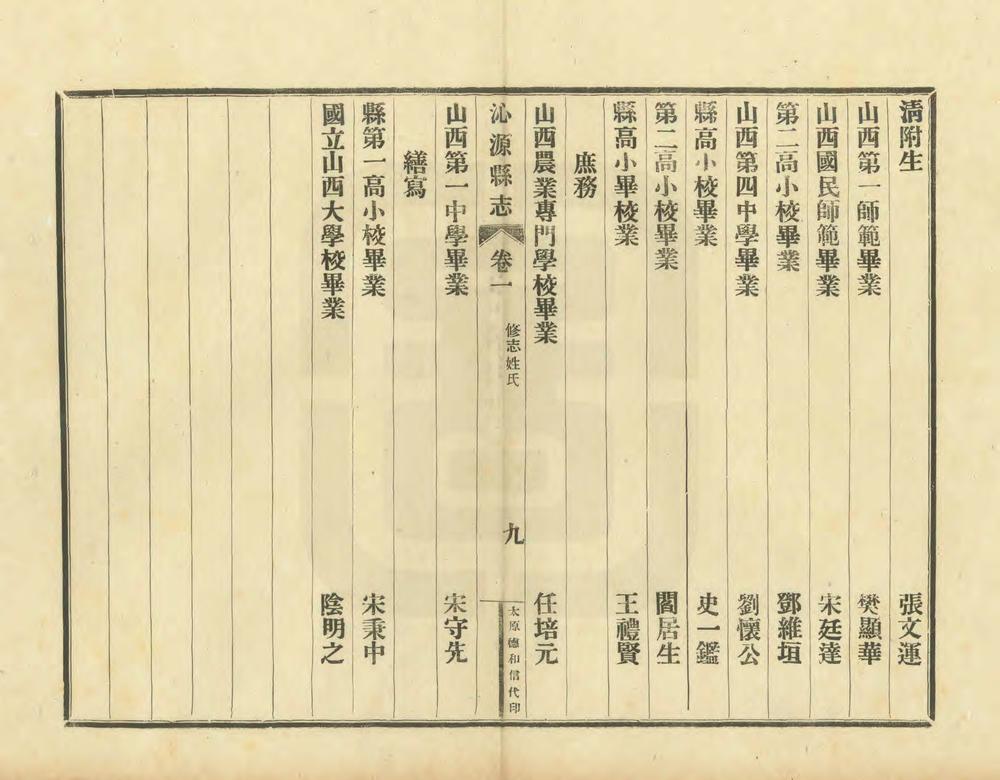 清附生 張文運
山西第一師範畢業 樊顯華
山西國民師範畢業 宋廷達
第二高小校畢業 鄧維垣
山西第四中學畢業 劉懷公
縣高小校畢業 史一鑑
第二高小校畢業 閻居生
縣高小畢校業 王禮賢
庶務
山西農業專門學校畢業 任培元
沁源縣志 卷一 修志姓氏 九 太原德和信代印
山西第一中學畢業 宋守先
繕寫
縣第一高小校畢業 宋秉中
國立山西大學校畢業 陰明之